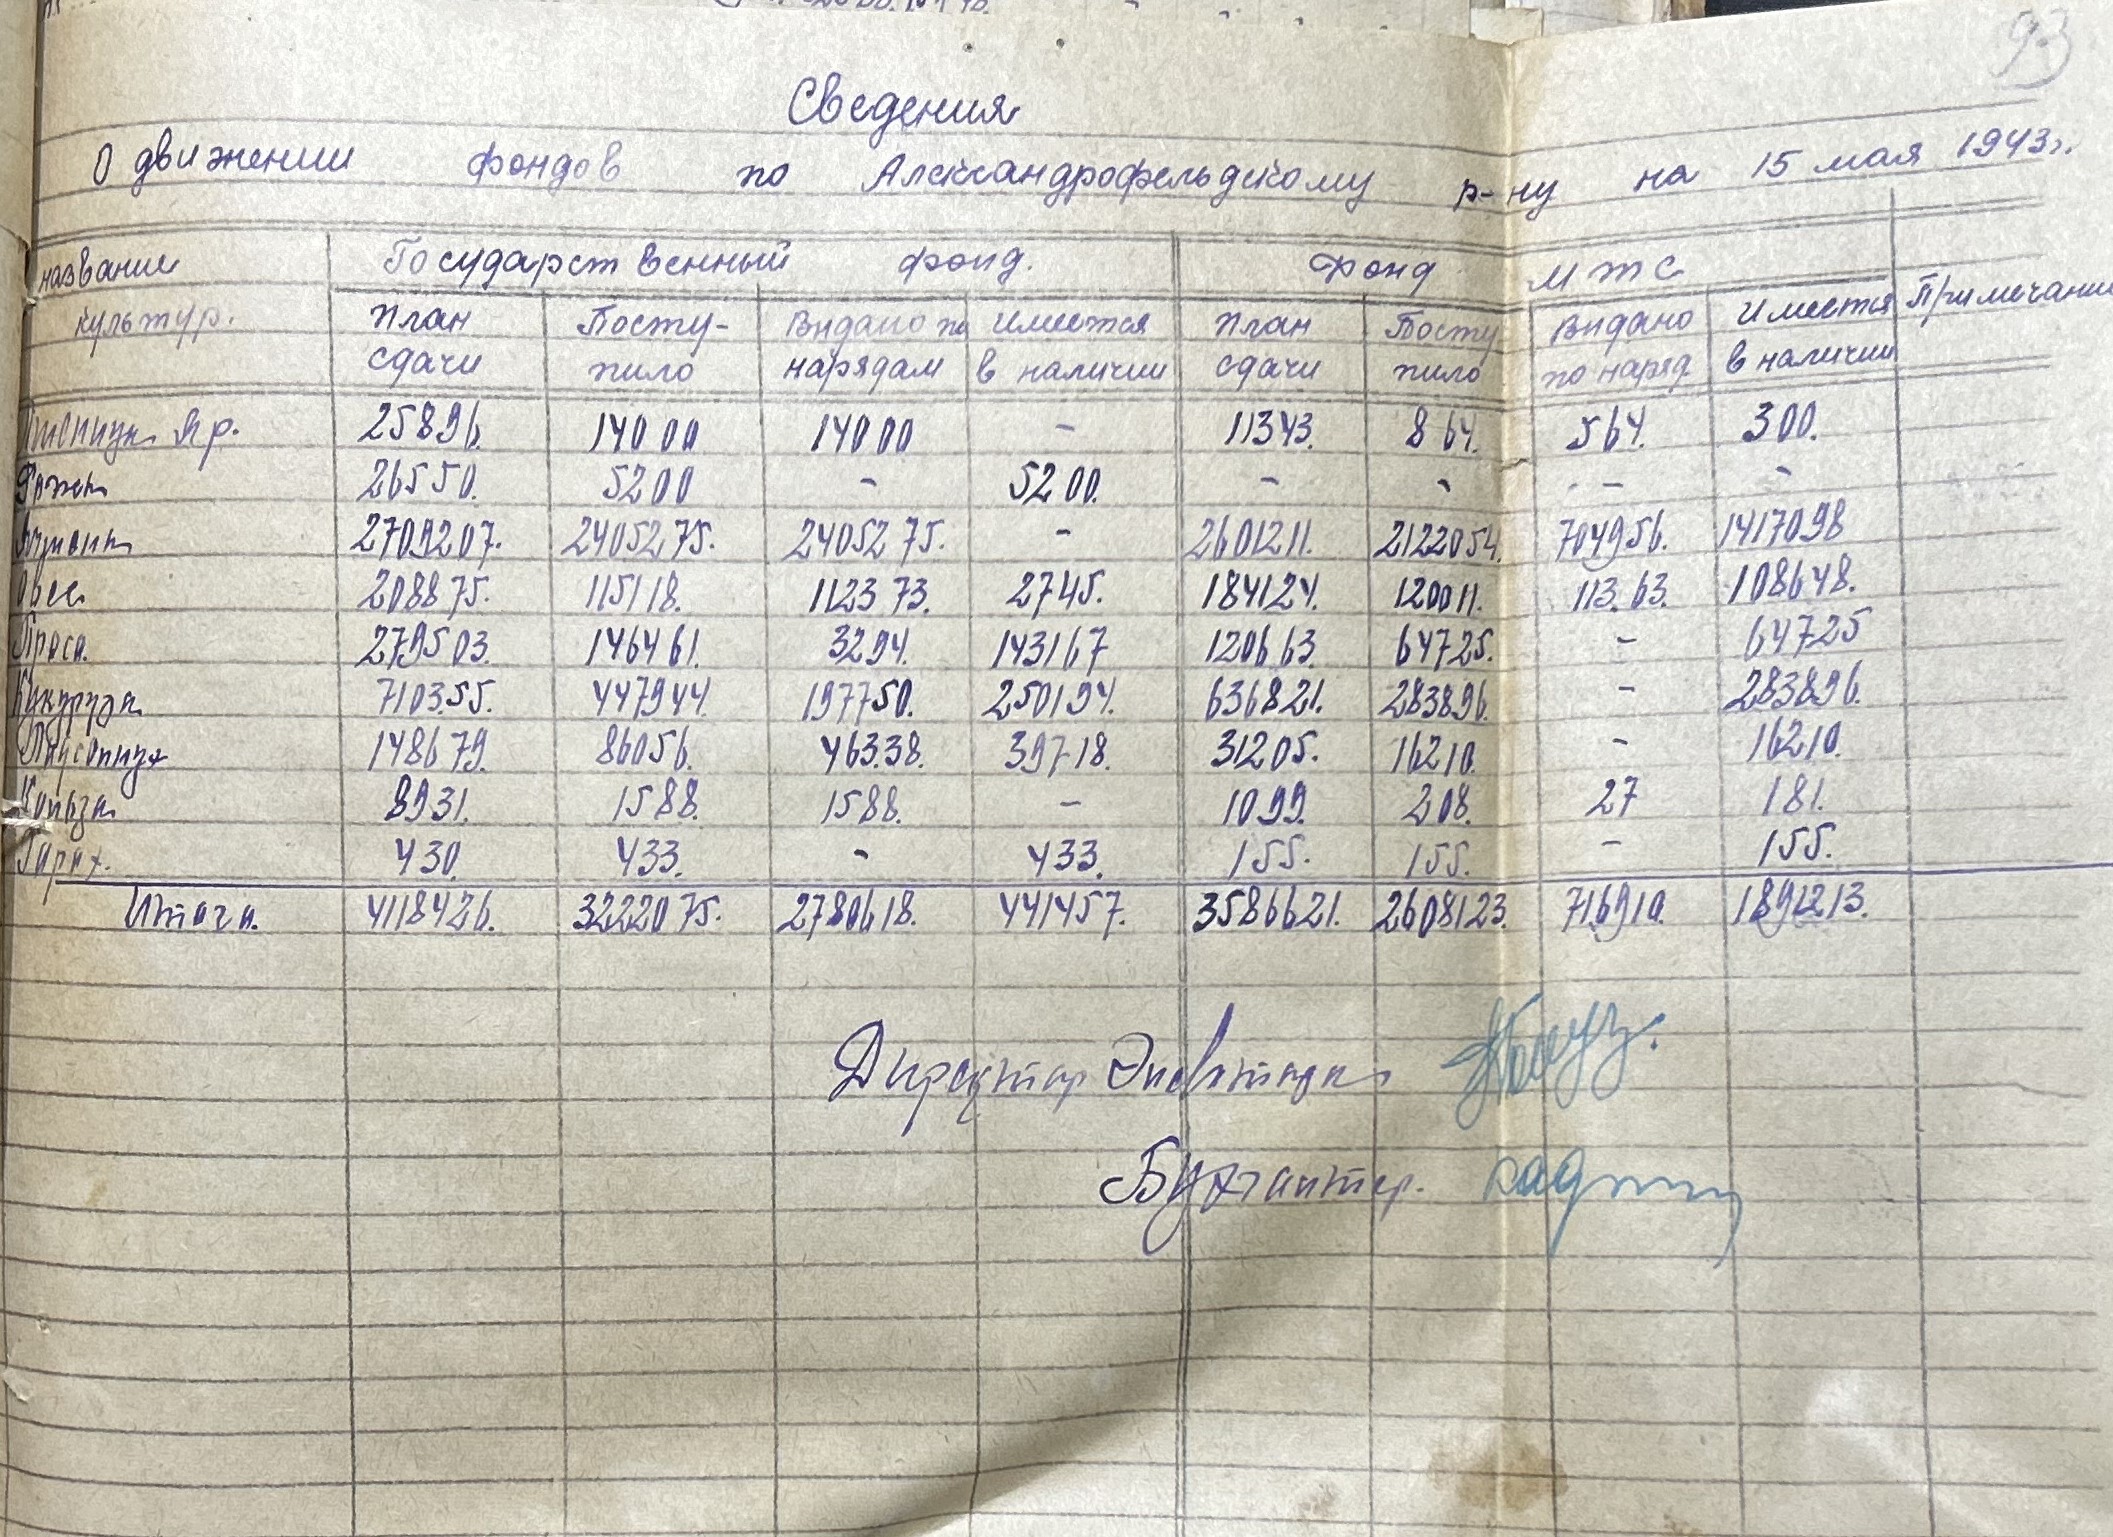 93
Сведения
О движении фондов по Александрофельдскому р-ну на 15 мая 1943г.
название культур. | Государственный фонд. | Фонд МТС | Примечание
План сдачи | Поступило | Видано по нарядам | Имеется в наличии | План сдачи | Посту пило | Видано по наряд | Имеется в наличии
Пшеница Яр. 25896. 14000 14000 – 11343. 864. 564. 300.
Рожь 26550. 5200 – 5200. – – – –
Ячмень 2709207. 2405275. 2405275. – 2601211. 2122054. 704956. 1417098
Овес 208875. 115118. 112373. 2745. 184124. 120011. 113.63. 108648.
Проса. 279503. 146461. 3294. 143167 120663. 64725. – 64725
Кукуруза 7103.55. 447944. 197750. 250194. 636821. 283896. – 283896.
148679. 86056. 463.38. 39718. 31205. 16210. – 16210.
Кольза 8931. 1588. 1588. – 1099. 208. 27 181.
Горох. 430. 433. – 433. 155. 155. – 155.
Итого. 4118426. 3222075. 2780618. 441457. 3586621. 2608123. 716910. 1891213.
Директор Элеватора
Бухгалтер.